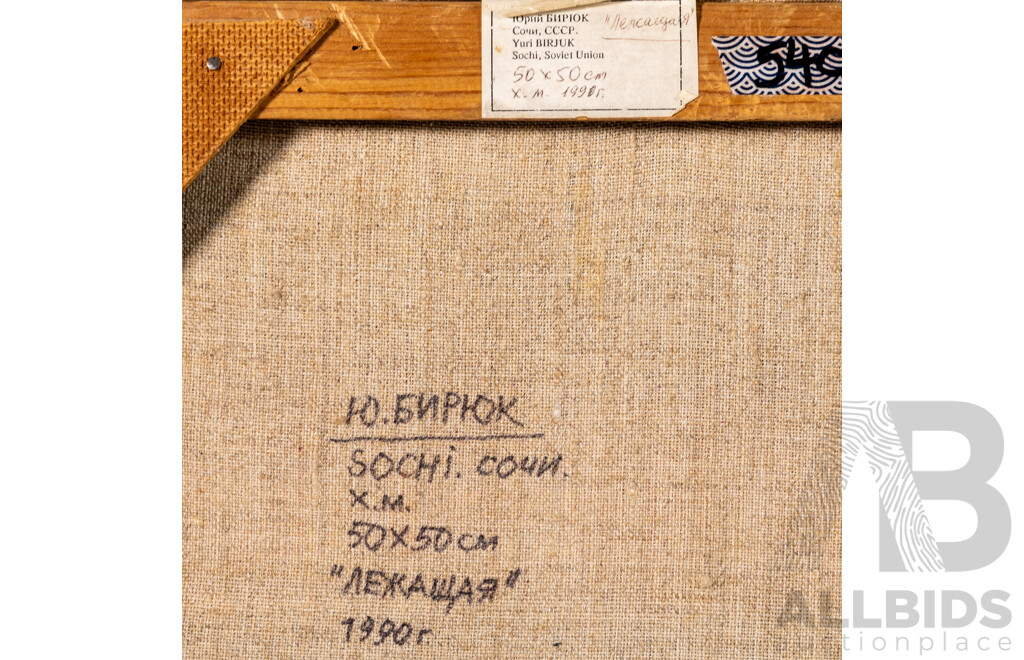 Юрий БИРЮК
"Лежащая"
Сочи, СССР.
Yuri BIRJUK
Sochi, Soviet Union
50 x 50 cm
х. м. 1990г.
540
Ю. БИРЮК
SOCHi. СОЧИ.
Х.М.
50Х50 см
"ЛЕЖАЩАЯ"
1990 г.
AB
ALLBIDS
auctionplace